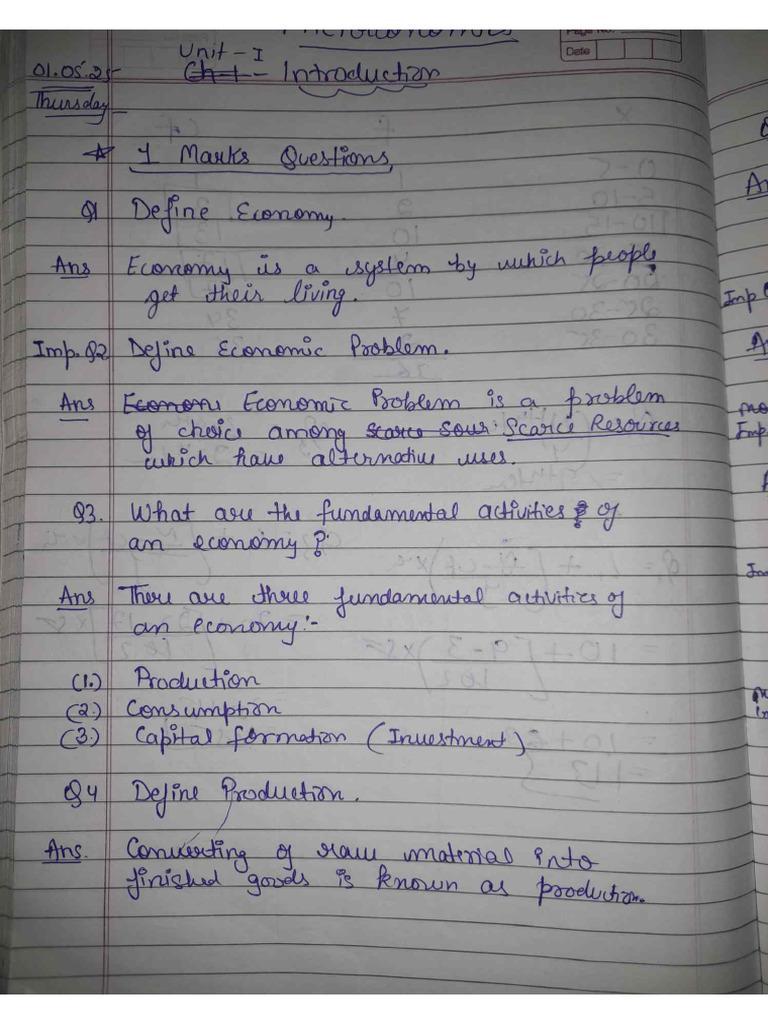 Unit - I
Page No.
Date
01.05.25 Ch-1 - Introduction
Thursday
☆ 1 Marks Questions
Q1 Define Economy.
Ans Economy is a system by which people
get their living.
Imp. Q2 Define Economic Problem.
Ans Econom Economic Problem is a problem
of choice among scarce sour Scarce Resources
which have alternative uses.
Q3. What are the fundamental activities of
an economy?
Ans There are three fundamental activities of
an economy:-
(1.) Production
(2.) Consumption
(3.) Capital formation (Investment)
Q4 Define Production.
Ans. Converting of raw material into
finished goods is known as production.
An
Imp
Imp.